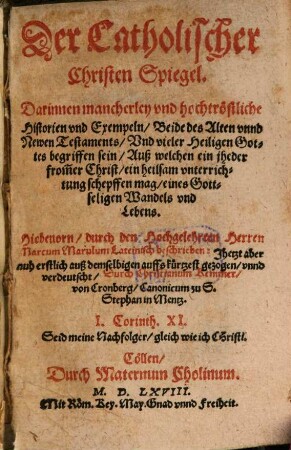 Der Catholischer
Christen Spiegel.
Darinnen mancherley vnd hochtröstliche
Historien vnd Exempeln / Beide des Alten vnnd
Newen Testaments / Vnd vieler Heiligen Got-
tes begriffen sein / Auß welchen ein jheder
from̃er Christ / ein heilsam vnterrich-
tung schepffen mag / eines Gott-
seligen Wandels vnd
Lebens.
Hiebeuorn / durch den Hochgelehrten Herren
Marcum Marulum Lateinisch beschrieben: Jhetzt aber
nuh erstlich auß demselbigen auffs kürtzest gezogen / vnnd
verdeutscht / Durch
von Cronberg / Canonicum zu S.
Stephan in Mentz.
I. Corinth. XI.
Seid meine Nachfolger / gleich wie ich Christi.
Cöllen /
Durch Maternum Cholinum.
M. D. LXVIII.
Mit Röm. Key. May. Gnad vnnd Freiheit.